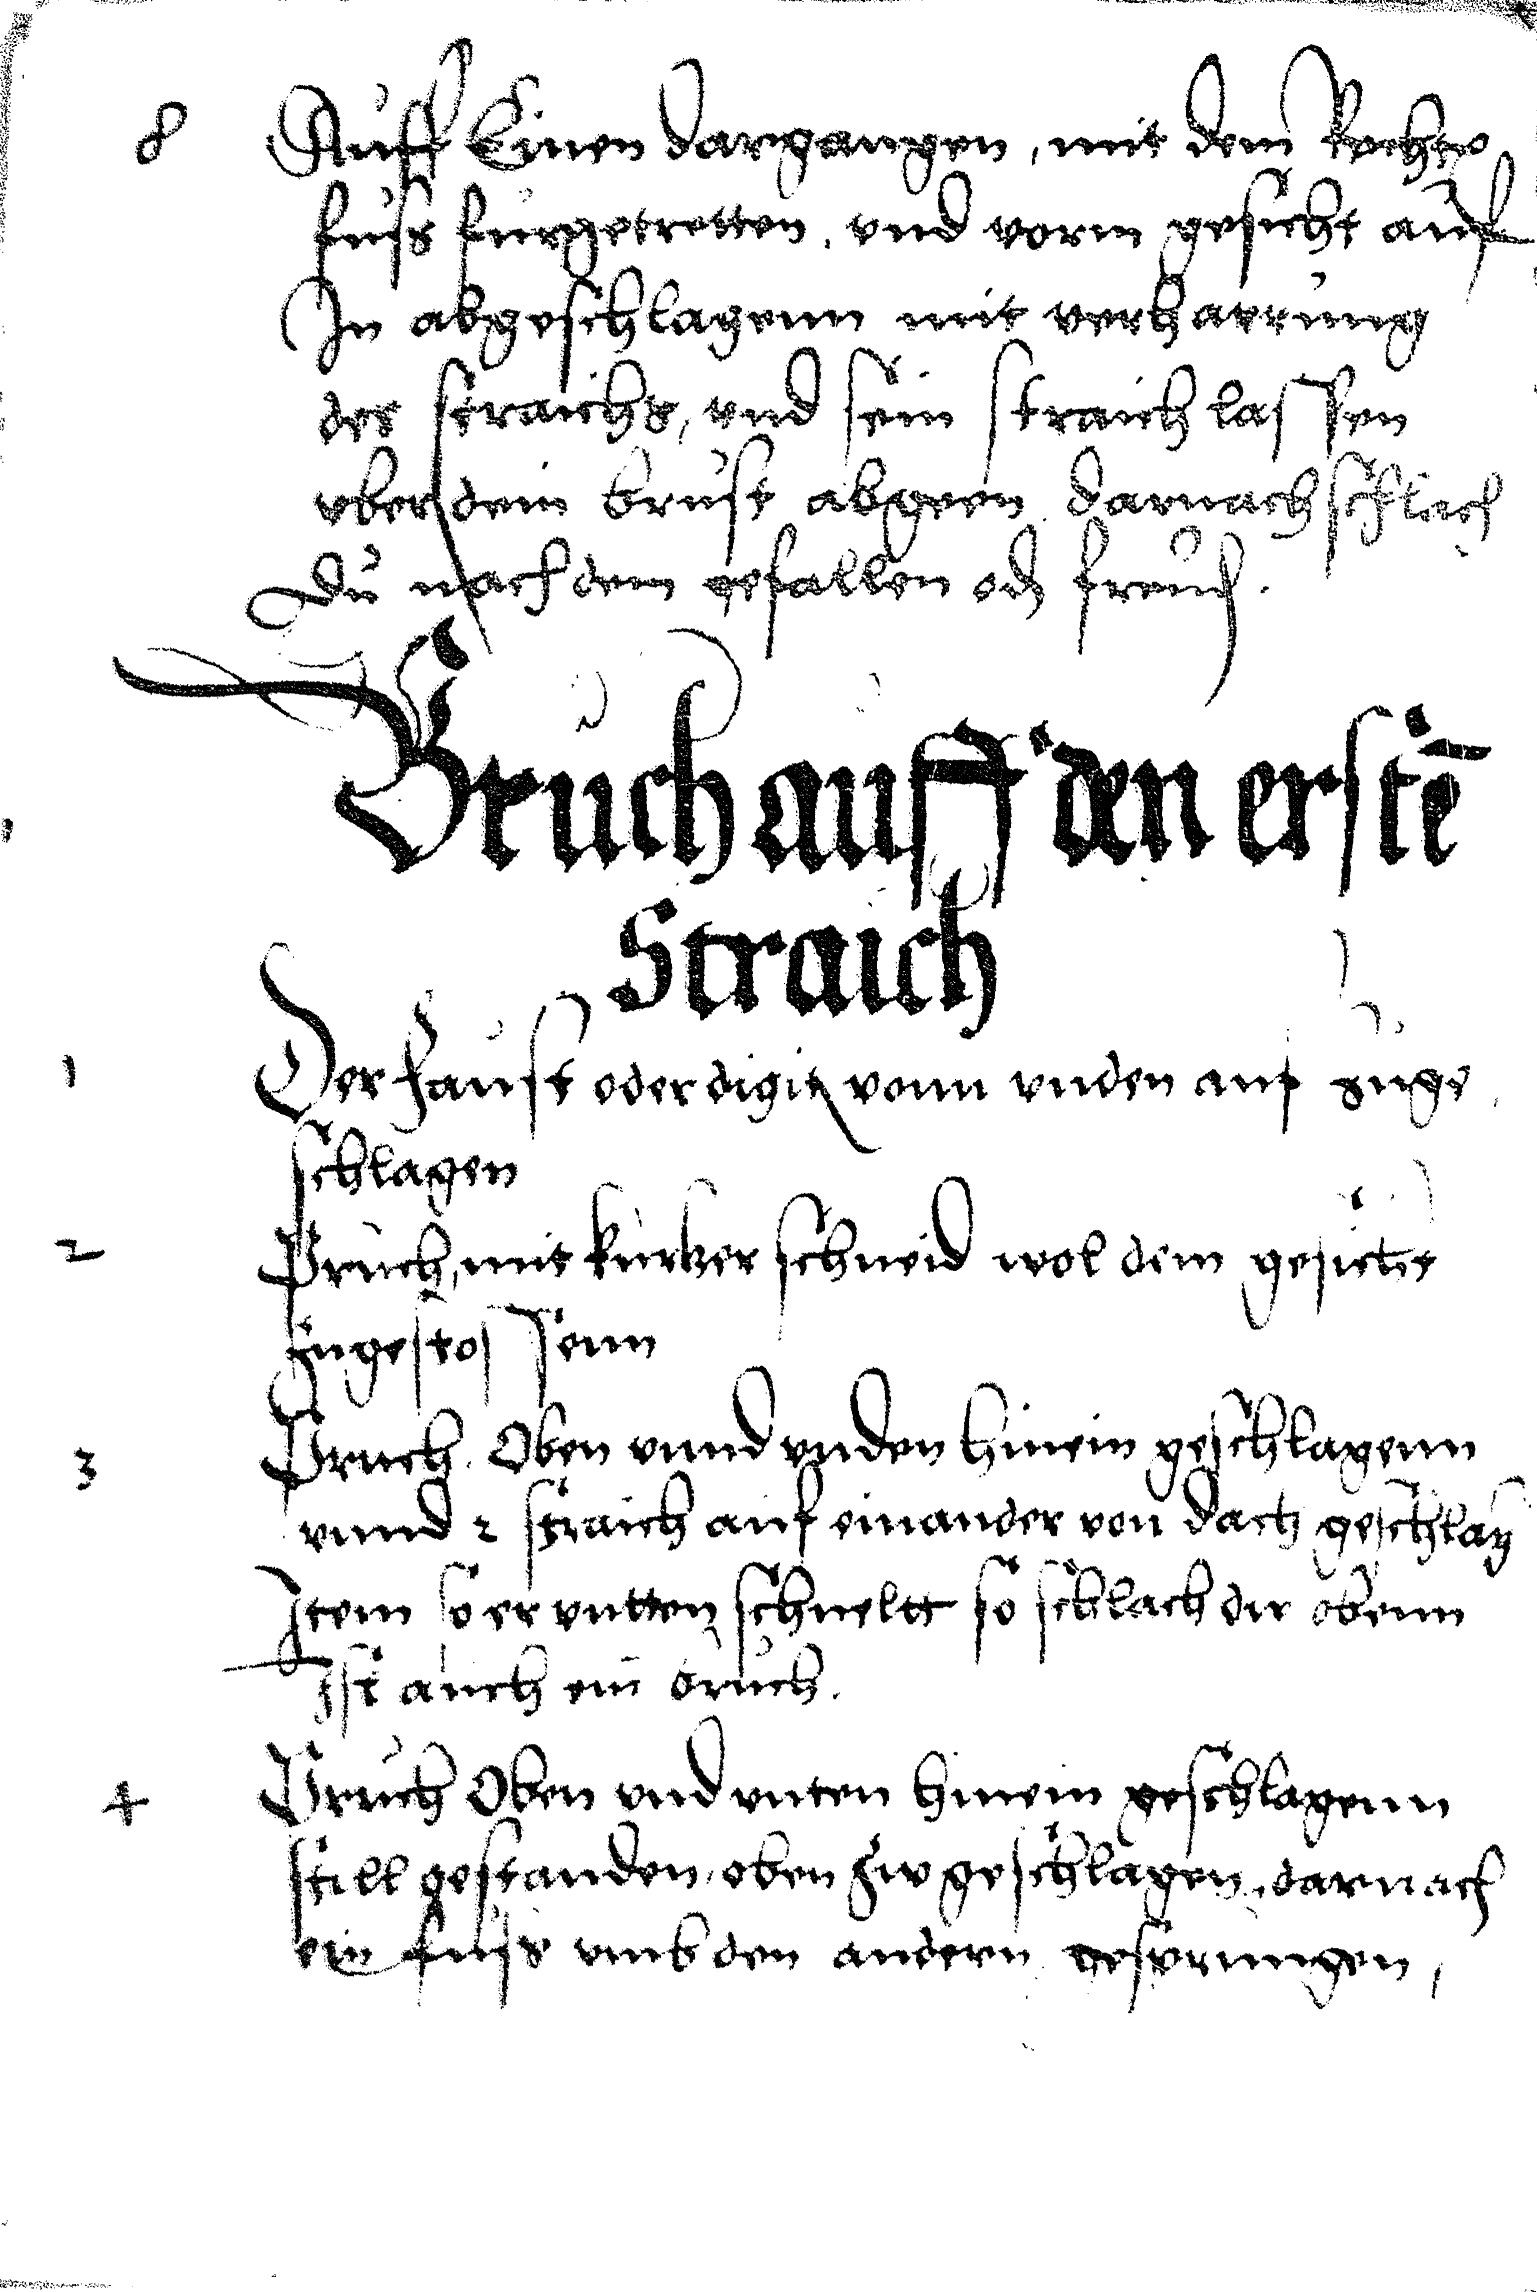 8 Auff Einen dargangen, mit dem Rechte
fuss fürgetretten, vnd vorm gesicht auf
In abgeschlagenn mit verharrung
des straichs, vnd sein straich lassen
vber dein brust abgeen darnach schlach
du nach dem gefallen oder freud.
Bruch auff den erstē
Straich
1 Der faust oder vonn vnden auf zuge
schlagen
2 Pruch, mit kurtzer schneid wol dem gesicht
zugestossenn
3 Pruch. Oben vnnd vnden hinein geschlagenn
vnnd 2 straich auf einander von dach geschlag
Item so er vntten schnelt so schlach du obenn
Ist auch ein bruch.
4 Pruch Oben vnd vnten hinein geschlagenn
still gestanden, oben zw geschlagen, darnach
ein fuss vmb den andern gesprungen,